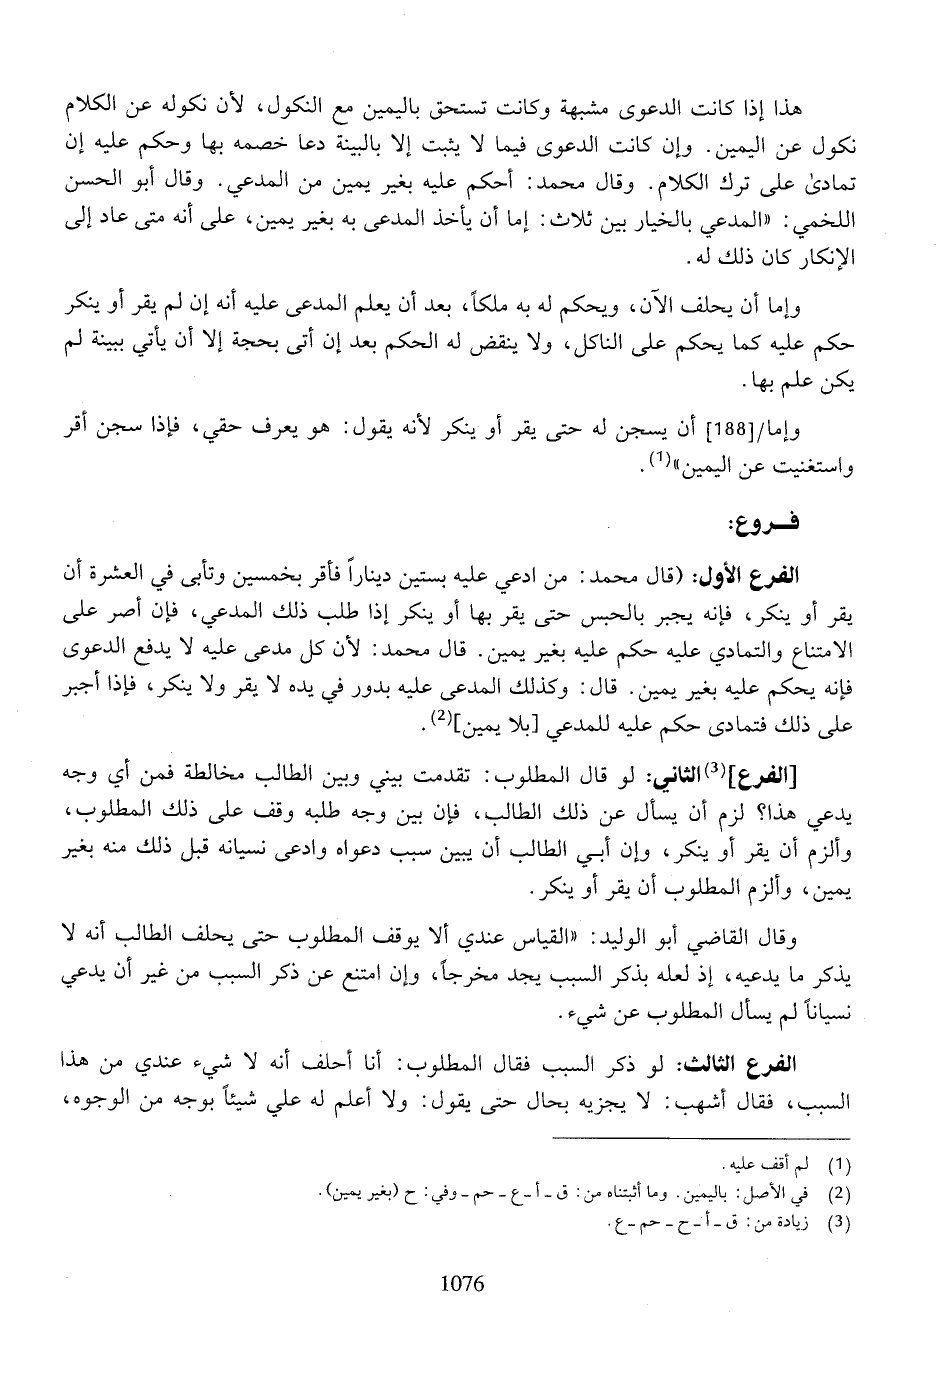 هذا إذا كانت الدعوى مشبهة وكانت تستحق باليمين مع النكول، لأن نكوله عن الكلام
نكول عن اليمين. وإن كانت الدعوى فيما لا يثبت إلا بالبينة دعا خصمه بها وحكم عليه إن
تمادىٰ على ترك الكلام. وقال محمد: أحكم عليه بغير يمين من المدعي. وقال أبو الحسن
اللخمي: «المدعي بالخيار بين ثلاث: إما أن يأخذ المدعى به بغير يمين، على أنه متى عاد إلى
الإنكار كان ذلك له.
وإما أن يحلف الآن، ويحكم له به ملكاً، بعد أن يعلم المدعى عليه أنه إن لم يقر أو ينكر
حكم عليه كما يحكم على الناكل، ولا ينقض له الحكم بعد إن أتى بحجة إلا أن يأتي ببينة لم
يكن علم بها.
وإما/[188] أن يسجن له حتى يقر أو ينكر لأنه يقول: هو يعرف حقي، فإذا سجن أقر
واستغنيت عن اليمين»(1).
فـروع:
الفرع الأول: (قال محمد: من ادعي عليه بستين ديناراً فأقر بخمسين وتأبى في العشرة أن
يقر أو ينكر، فإنه يجبر بالحبس حتى يقر بها أو ينكر إذا طلب ذلك المدعي، فإن أصر على
الامتناع والتمادي عليه حكم عليه بغير يمين. قال محمد: لأن كل مدعى عليه لا يدفع الدعوى
فإنه يحكم عليه بغير يمين. قال: وكذلك المدعى عليه بدور في يده لا يقر ولا ينكر، فإذا أجبر
على ذلك فتمادى حكم عليه للمدعي [بلا يمين](2).
[الفرع](3) الثاني: لو قال المطلوب: تقدمت بيني وبين الطالب مخالطة فمن أي وجه
يدعي هذا؟ لزم أن يسأل عن ذلك الطالب، فإن بين وجه طلبه وقف على ذلك المطلوب،
وألزم أن يقر أو ينكر، وإن أبـي الطالب أن يبين سبب دعواه وادعى نسيانه قبل ذلك منه بغير
يمين، وألزم المطلوب أن يقر أو ينكر.
وقال القاضي أبو الوليد: «القياس عندي ألا يوقف المطلوب حتى يحلف الطالب أنه لا
يذكر ما يدعيه، إذ لعله بذكر السبب يجد مخرجاً، وإن امتنع عن ذكر السبب من غير أن يدعي
نسياناً لم يسأل المطلوب عن شيء.
الفرع الثالث: لو ذكر السبب فقال المطلوب: أنا أحلف أنه لا شيء عندي من هذا
السبب، فقال أشهب: لا يجزيه بحال حتى يقول: ولا أعلم له علي شيئاً بوجه من الوجوه،
(1) لم أقف عليه.
(2) في الأصل: باليمين. وما أثبتناه من: ق ـ أ ـ ع ـ حم ـ وفي: ح (بغير يمين).
(3) زيادة من: ق ـ أ ـ ح ـ حم ـ ع.
1076